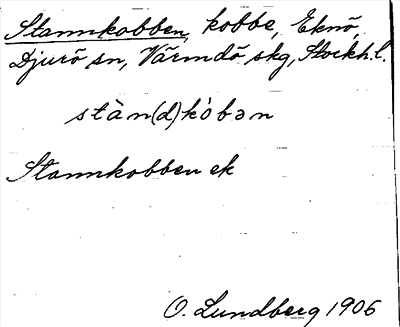 Stannkobben, kobbe, Eknö,
Djurö sn, Värmdö skg, Stockh.l.
stàn(d)kòbən
Stannkobben ek
O. Lundberg 1906